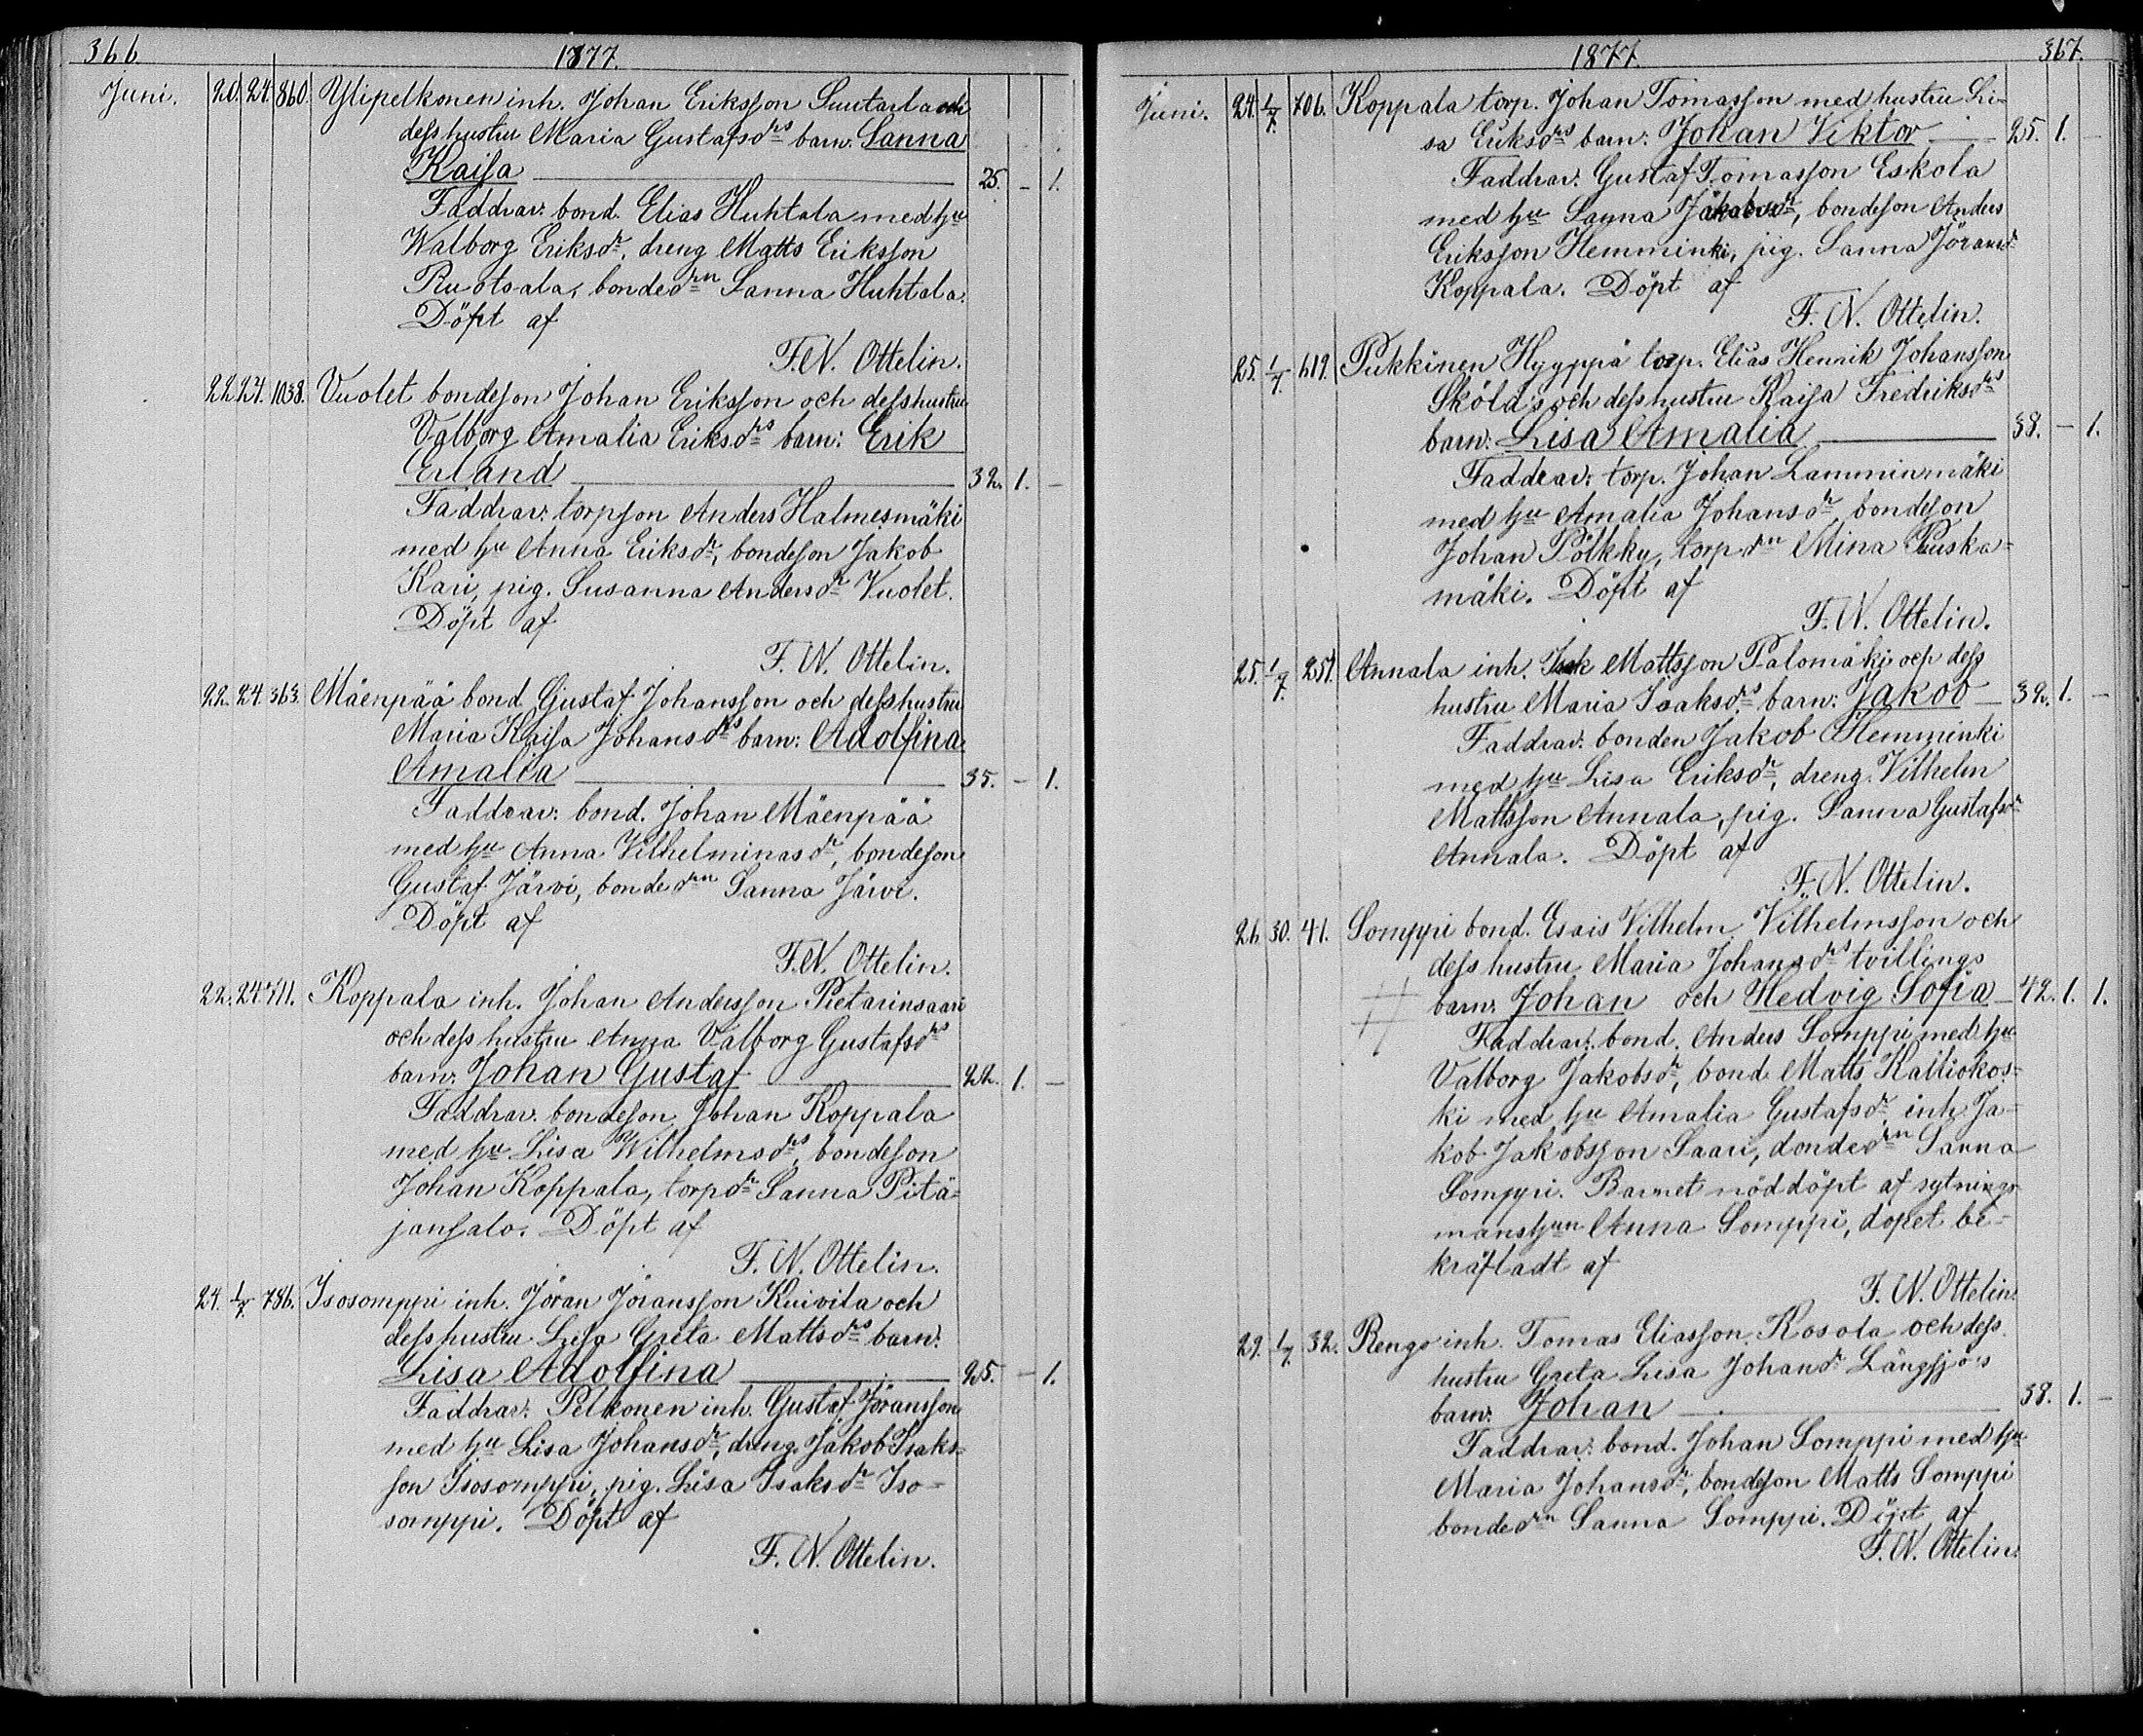 366. 1877.
Juni. 20. 24. 860. Ylipelkonen inh. Johan Eriksson Suutarla och
dess hustru Maria Gustafsdrs barn: Sanna
Kaisa 25. – 1.
Faddrar: bond. Elias Huhtala med hu
Walborg Eriksdr, dreng Matts Eriksson
Ruotsala, bondedrn Sanna Huhtala.
Döpt af
F.N. Ottelin.
22. 24. 1038. Vuolet bondeson Johan Eriksson och dess hustru
Valborg Amalia Eriksdrs barn: Erik
Erland 32. 1. –
Faddrar: torpson Anders Halmesmäki
med hu Anna Eriksdr, bondeson Jakob
Kari, pig. Susanna Andersdr Vuolet.
Döpt af
F. N. Ottelin.
22. 24. 363. Mäenpää bond. Gustaf Johansson och dess hustru
Maria Kaisa Johansdrs barn: Adolfina
Amalia 35. – 1.
Faddrar: bond. Johan Mäenpää
med hu Anna Vilhelminasdr, bondeson
Gustaf Järvi, bondedrn Sanna Järvi.
Döpt af
F.N. Ottelin.
22. 24. 711. Koppala inh. Johan Andersson Pietarinsaari
och dess hustru Anna Valborg Gustafsdrs
barn: Johan Gustaf 22. 1. –
Faddrar: bondeson Johan Koppala
med hu Lisa Wilhelmsdrs, bondeson
Johan Koppala, torpdr Sanna Pitä-
jansalo. Döpt af
F. N. Ottelin.
24. 1/7. 786. Isosomppi inh. Jöran Jöransson Kuivila och
dess hustru Lisa Greta Mattsdrs barn:
Lisa Adolfina 25. – 1.
Faddrar: Pelkonen inh. Gustaf Jöransson
med hu Lisa Johansdr, dreng Jakob Isaks-
son Isosomppi, pig. Lisa Isaksdr Iso-
somppi. Döpt af
F. N. Ottelin.
1877. 367.
Juni. 24. 1/7. 706. Koppala torp. Johan Tomasson med hustru Li-
sa Eriksdrs barn: Johan Viktor 25. 1. –
Faddrar: Gustaf Tomasson Eskola
med hu Sanna Jakobsdr, bondeson Anders
Eriksson Hemminki, pig. Sanna Jöransdr
Koppala. Döpt af
F. N. Ottelin.
25. 1/7. 619. Pukkinen Hyyppä torp. Elias Henrik Johansson
Sköld's och dess hustru Kaisa Fredriksdrs
barn: Lisa Amalia 38. – 1.
Faddrar: torp. Johan Lamminmäki
med hu Amalia Johansdr, bondeson
Johan Pölkky, torpdrn Mina Puska-
mäki. Döpt af
F. N. Ottelin.
25. 1/7. 251. Annala inh. Isak Mattsson Palomäki och dess
hustru Maria Isaksdrs barn: Jakob 32. 1. –
Faddrar: bonden Jakob Hemminki
med hu Lisa Eriksdr, dreng Vilhelm
Mattsson Annala, pig. Sanna Gustafsdr
Annala. Döpt af
F. N. Ottelin.
26. 30. 41. Somppi bond. Esais Vilhelm Vilhelmsson och
dess hustru Maria Johansdrs tvillings
barn: Johan och Hedvig Sofia 42. 1. 1.
Faddrar: bond. Anders Somppi med hu
Valborg Jakobsdr, bond. Matts Kalliokos-
ki med hu Amalia Gustafsdr, inh. Ja-
kob Jakobsson Saari, dondedrn Sanna
Somppi. Barnet nöddöpt af sytnings
manshun Anna Somppi, dopet be-
kräftadt af
F. N. Ottelin.
29. 1/7. 32. Rengo inh. Tomas Eliasson Kosola och dess
hustru Greta Lisa Johansdr Långsjö's
barn: Johan 38. 1. –
Faddrar: bond. Johan Somppi med hu
Maria Johansdr, bondeson Matts Somppi
bondedrn Sanna Somppi. Döpt af
F. N. Ottelin.